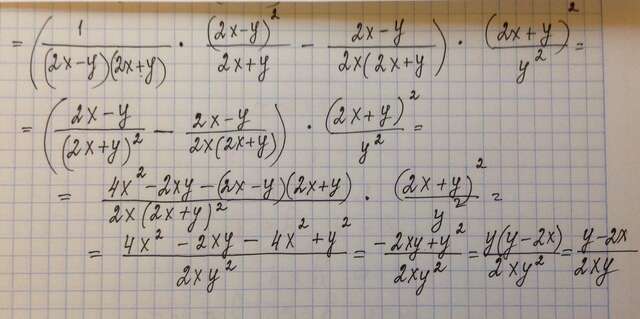 = (1/((2x-y)(2x+y)) · (2x-y)²/(2x+y) - (2x-y)/(2x(2x+y))) · (2x+y)²/y² =
= ((2x-y)/(2x+y)² - (2x-y)/(2x(2x+y))) · (2x+y)²/y² =
= (4x²-2xy-(2x-y)(2x+y))/(2x(2x+y)²) · (2x+y)²/y² =
= (4x²-2xy-4x²+y²)/(2xy²) = (-2xy+y²)/(2xy²) = y(y-2x)/(2xy²) = (y-2x)/(2xy)